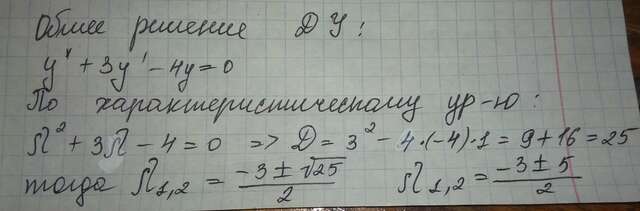 Общее решение ДУ:
y" + 3y' - 4y = 0
По характеристическому ур-ю:
λ² + 3λ - 4 = 0 => D = 3² - 4·(-4)·1 = 9 + 16 = 25
тогда λ₁,₂ = (-3 ± √25)/2 λ₁,₂ = (-3 ± 5)/2